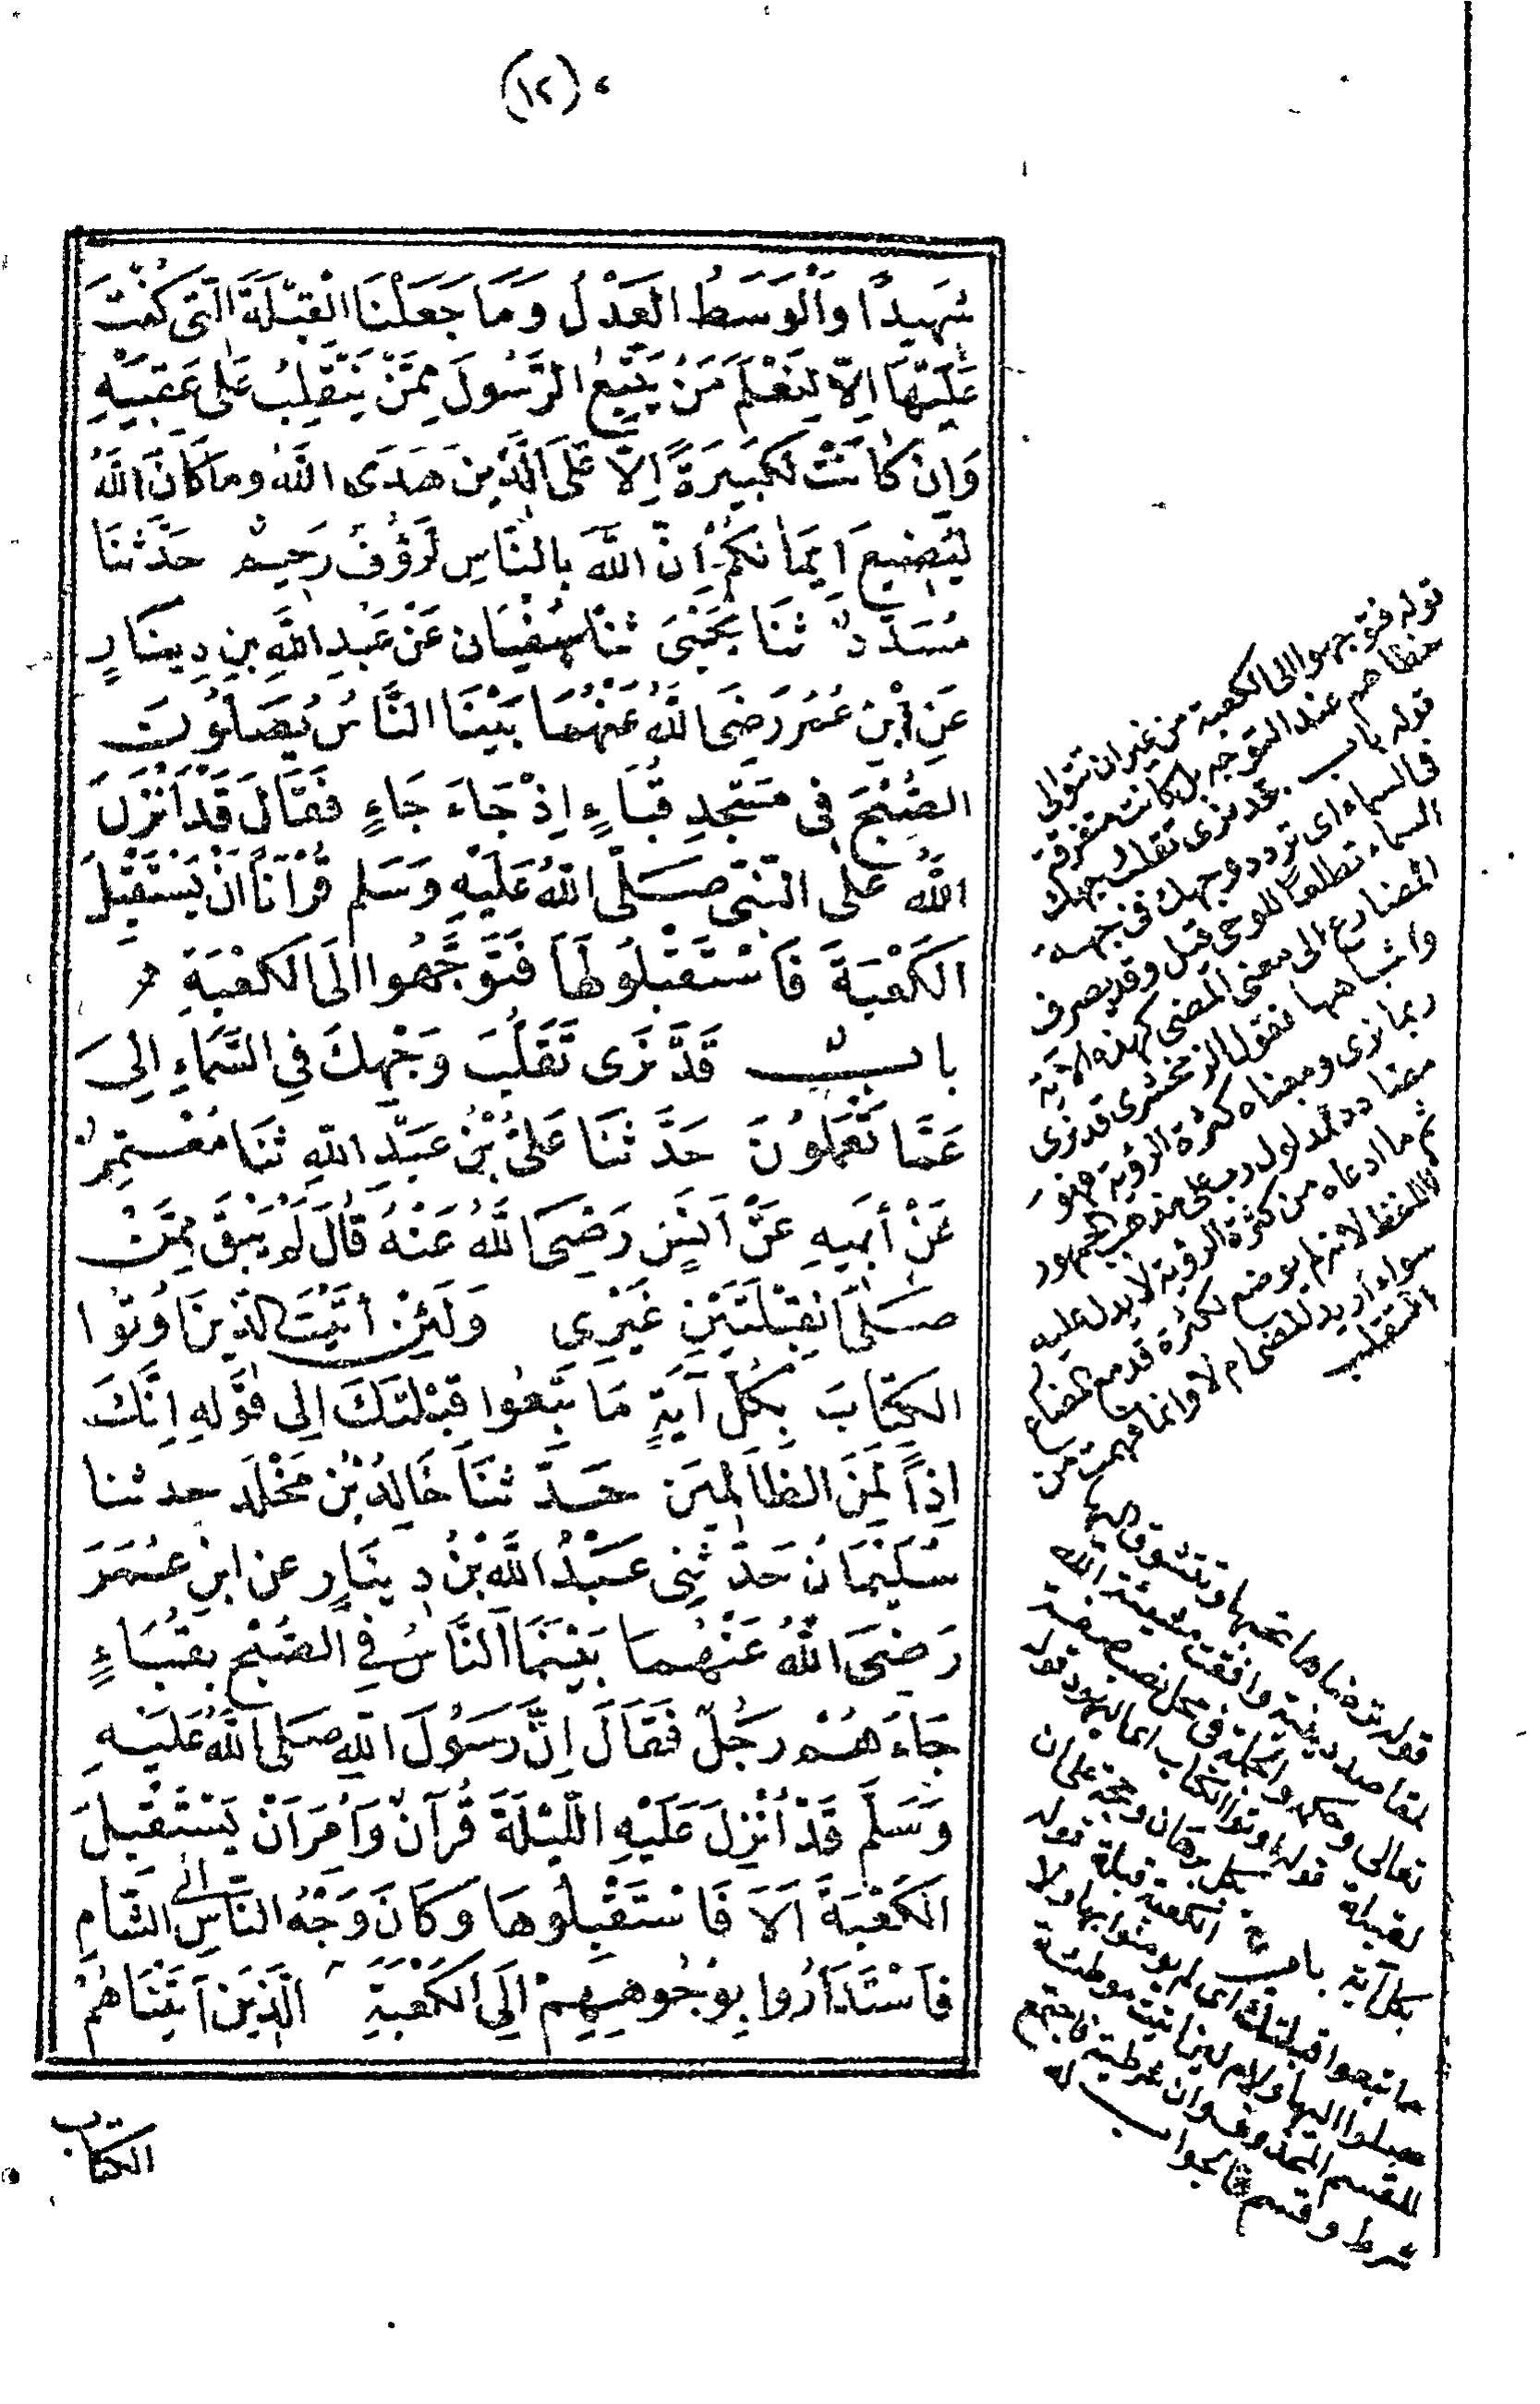 (١٢)
شَهِيدًا وَالْوَسَطُ العَدْلُ وَمَا جَعَلْنَا الْقِبْلَةَ الَّتِى كُنْتَ
عَلَيْهَا اِلَّا لِنَعْلَمَ مَنْ يَتَّبِعُ الرَّسُولَ مِمَّنْ يَنْقَلِبُ عَلَى عَقِبَيْهِ
وَاِنْ كَانَتْ لَكَبِيرَةً اِلَّا عَلَى الَّذِينَ هَدَى اللَّهُ وما كَانَ اللَّهُ
لِيُضِيعَ اِيمَانَكُمْ اِنَّ اللَّهَ بِالنَّاسِ لَرَؤُفٌ رَحِيمٌ حَدَّثَنَا
مُسَدَّدٌ ثَنَا يَحْيَى ثَنَا سُفْيَان عَنْ عَبْدِ اللَّهِ بنِ دِينَارٍ
عَنِ ابْنِ عُمَرَ رَضِىَ اللَّهُ عَنْهُمَا بَيْنَا النَّاسُ يُصَلُّونَ
الصُّبْحَ فِى مَسْجِدِ قُبَاءٍ اِذْ جَاءَ جَاءٍ فَقَالَ قَدْ اَنْزَلَ
اللَّهُ عَلَى النَّبِى صَلَّى اللهُ عَلَيْهِ وَسَلم قُرْآناً اَنْ يَسْتَقْبِلَ
الكَعْبَةَ فَاسْتَقْبِلُوهَا فَتَوَجَّهُوا اِلَى الكَعْبَةِ
باب قَدْ نَرَى تَقَلُّبَ وَجْهِكَ فِى السَّمَاءِ اِلىَ
عَمَّا تَعْمَلُونَ حَدَّثَنَا عَلِىُّ بْنُ عَبْدِ اللهِ ثَنَا مُعْتَمِرٌ
عَنْ أبِيهِ عَنْ اَنَسٍ رَضِىَ اللَّهُ عَنْهُ قَالَ لَمْ يَبْقَ مِمَّنْ
صَلَّى القِبْلَتَيْنِ غَيْرِى وَلَئِنْ أتَيْتَ الَّذِينَ اُوتُوا
الكِتَابَ بِكُلِّ آيَةٍ مَا تَبِعُوا قِبْلَتَكَ اِلى قَوْلهِ اِنَّكَ
اِذًا لَمِنَ الظَّالِمِينَ حَدَّثَنَا خَالِدُ بْنُ مَخْلَدٍ حدثنا
سُلَيْمَانُ حَدَّثَنِى عَبْدُ اللَّهِ بْنُ دِينَارٍ عن ابنِ عُمَرَ
رَضِىَ اللهُ عَنْهُمَا بَيْنَمَا النَّاسُ فِى الصُّبْحِ بِقُبَاءٍ
جَاءَهُمْ رَجُلٌ فَقَالَ اِنَّ رَسُولَ اللهِ صَلى اللَّهُ عَلَيْهِ
وَسَلَّمَ قَدْ اُنْزِلَ عَلَيْهِ اللَّيْلَةَ قُرآنٌ وَاُمِرَ اَنْ يَسْتَقْبِلَ
الكَعْبَةَ اَلَا فَاسْتَقْبِلُوهَا وَكَانَ وَجْهُ النَّاسِ الى الشَّامِ
فَاسْتَدَارُوا بِوُجُوهِهِمْ اِلَى الكَعْبَةِ الَّذِينَ آتَيْنَاهُمُ
الكتاب
قوله فتوجهوا الى الكعبة من غير ان تتوالى
خطاهم عند التوجه بل كانت متفرقة
قوله باب قد نرى تقلب وجهك
فى السماء اى تردد وجهك فى جهة
السماء تطلعا للوحى قيل وقد يصرف
المضارع الى معنى المضى كهذه الآية
واشباهها فقول الزمخشرى قد نرى
ربما نرى ومعناه كثرة الرؤية فهو
مضاد لمدلول رب على مذهب الجمهور
ثم ما ادعاه من كثرة الرؤية لا يدل عليه
اللفظ لانه لم يوضع لكثرة قد مع المضارع
سواء اريد المضى ام لا وانما فهمت من
التقلب
قوله ترضاها تحبها وتتشوق اليها
لمقاصد دينية وافقت مشيئة الله
تعالى والجملة فى محل نصب صفة
لقبلة قوله اوتوا الكتاب اى اليهود قوله
بكل آية بكل برهان وحجة على ان
الكعبة قبلة قوله
ما تبعوا قبلتك اى لم يؤمنوا بها ولا
صلوا اليها ولام لئن اتيت موطئة
للقسم المحذوف وان شرطية فاجتمع
شرط وقسم فالجواب له